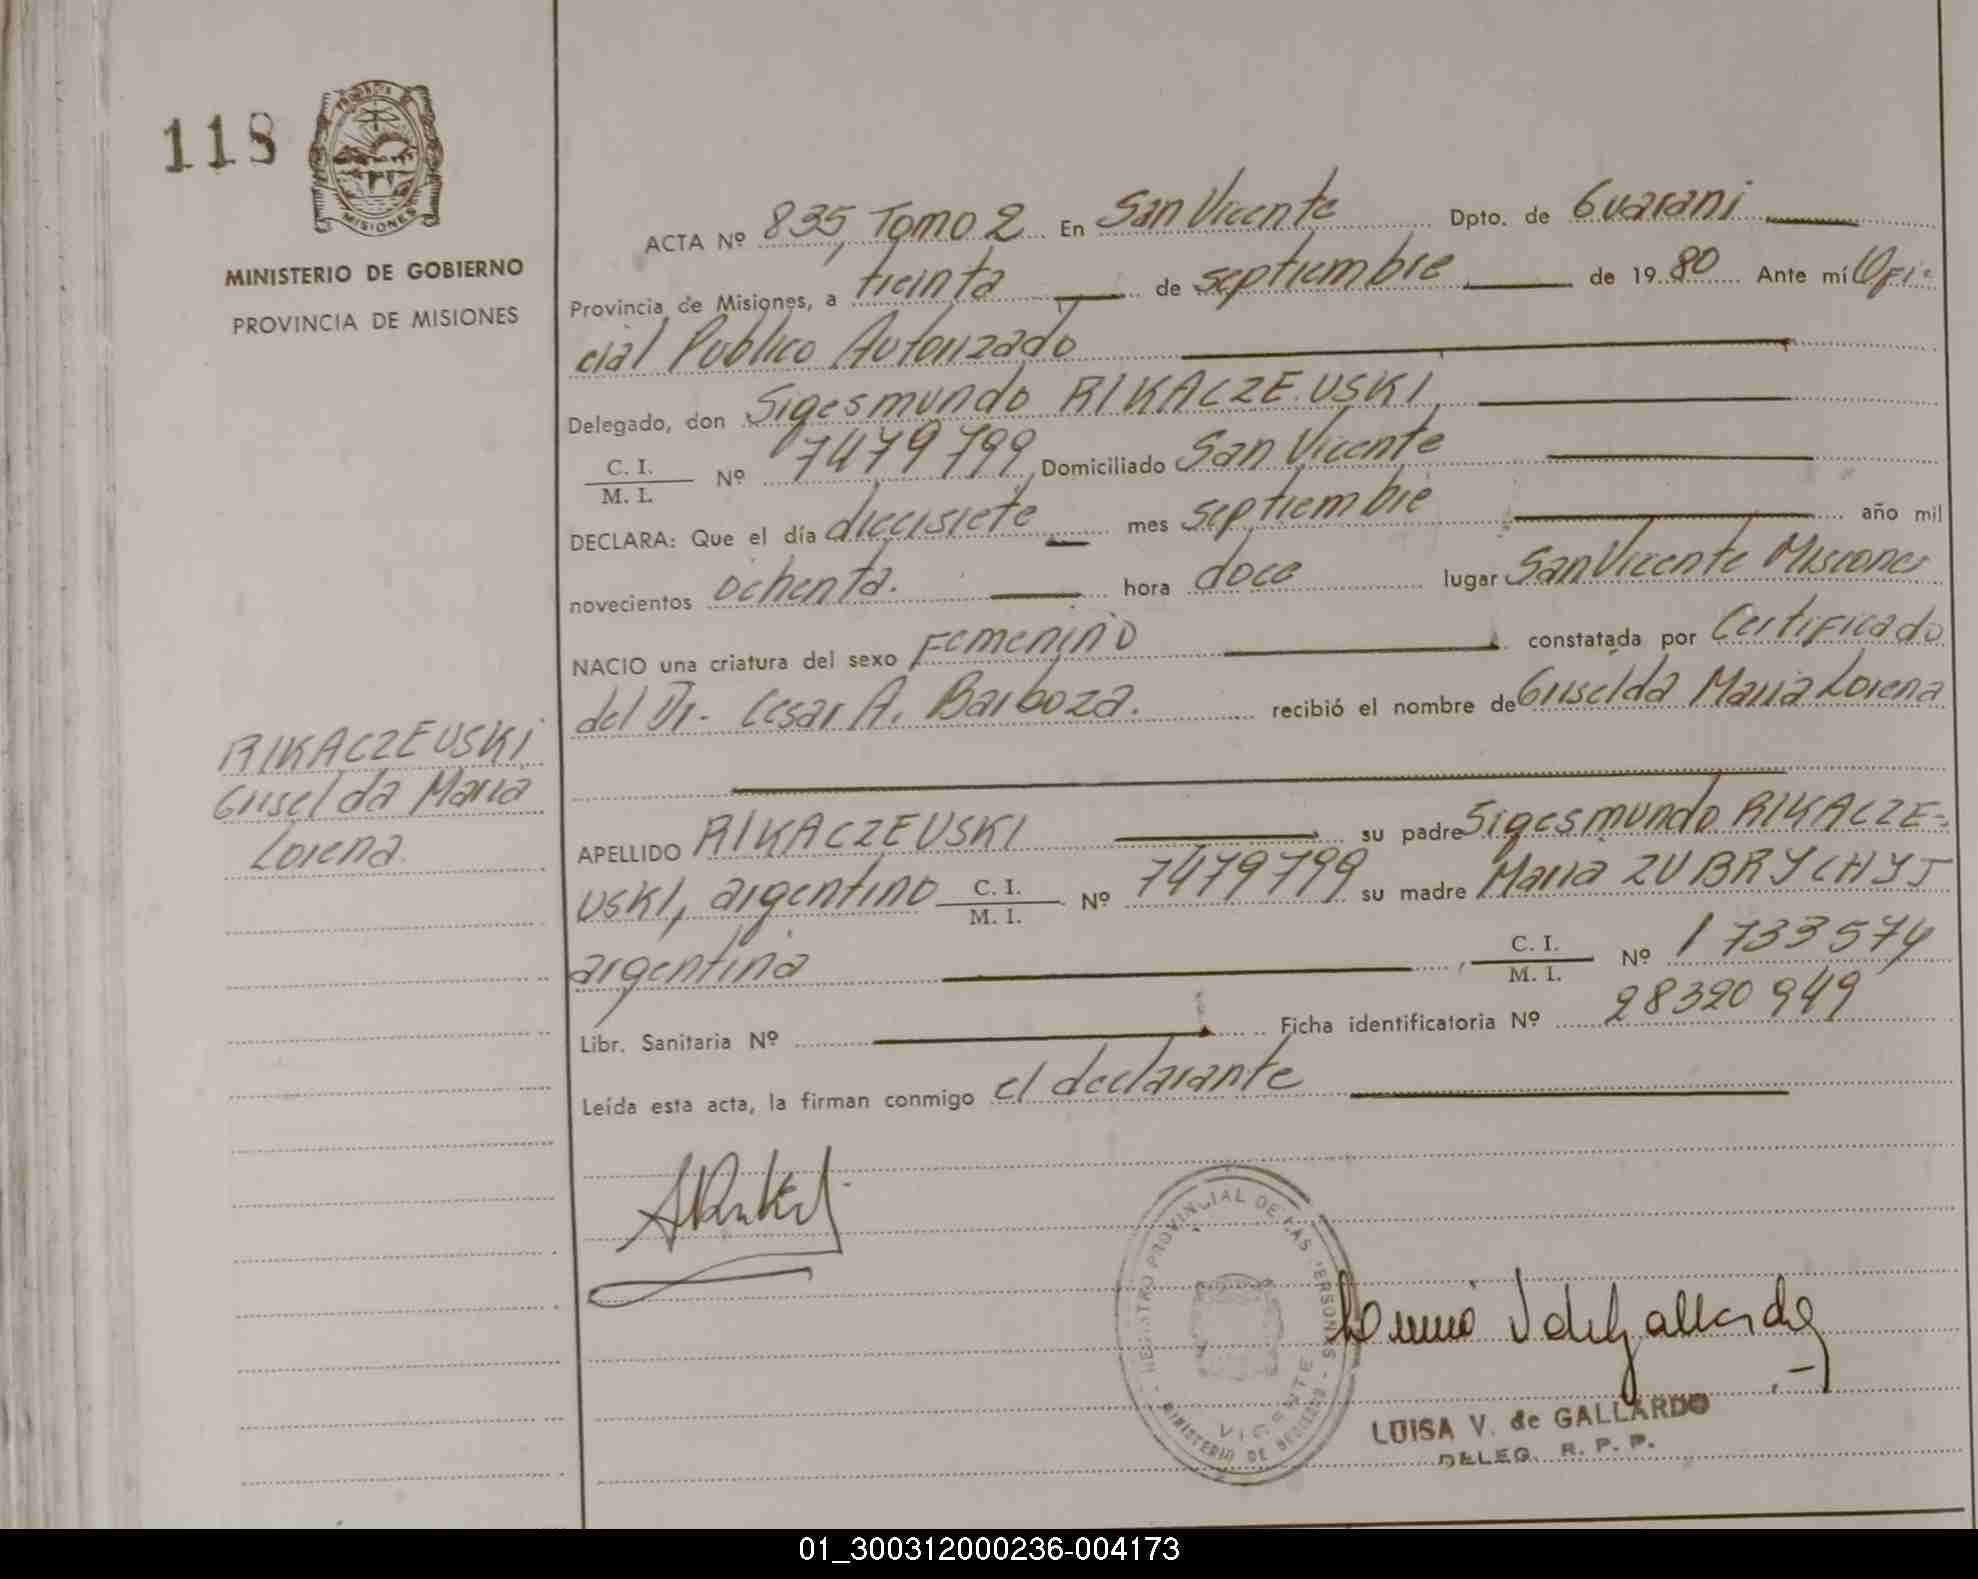 118
PROVINCIA DE
MISIONES
MINISTERIO DE GOBIERNO
PROVINCIA DE MISIONES
RIKACZEUSKI
Griselda Maria
Lorena
ACTA Nº 835, Tomo 2 En San Vicente Dpto. de Guarani
Provincia de Misiones, a treinta de septiembre de 1980 Ante mí Ofi-
cial Publico Autorizado
Delegado, don Sigesmundo RIKACZEUSKI,
C. I.
M. I. Nº 7479799, Domiciliado San Vicente
DECLARA: Que el día diecisiete mes septiembre año mil
novecientos ochenta. hora doce lugar San Vicente Misiones
NACIO una criatura del sexo Femenino constatada por Certificado
del Dr. Cesar A. Barboza. recibió el nombre de Griselda Maria Lorena
APELLIDO RIKACZEUSKI su padre Sigesmundo RIKACZE-
USKI, argentino C. I.
M. I. Nº 7479799 su madre Maria ZUBRYCHYJ
argentina, C. I.
M. I. Nº 1733574
Libr. Sanitaria Nº Ficha identificatoria Nº 28320949
Leída esta acta, la firman conmigo el declarante
REGISTRO PROVINCIAL DE LAS PERSONAS
VICENTE
MINISTERIO DE GOBIERNO
Luisa V de Gallardo
LUISA V. de GALLARDO
DELEG. R. P. P.
01_300312000236-004173